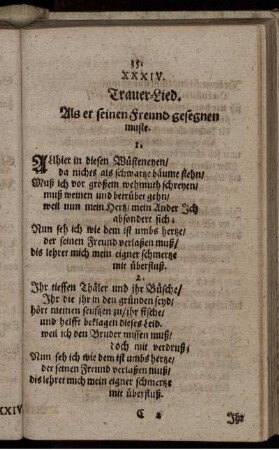 35.
XXXIV.
Trauer-Lied.
Als er seinen Freund gesegnen
muste.
1.
Allhier in diesen Wüsteneyen/
da nichts als schwartze bäume stehn/
Muß ich vor großem wehmuth schreyen/
muß weinen und betrübet gehn/
weil nun mein Hertz/ mein Ander Ich
absondert sich;
Nun seh ich wie dem ist umbs hertze/
der seinen Freund verlaßen muß/
dis lehret mich mein eigner schmertze
mit überfluß.
2.
Ihr tieffen Thäler und ihr Büsche/
Ihr die ihr in den gründen seyd/
hört meinen seufftzen zu/ ihr fische/
und helfft beklagen dieses Leid.
weil ich den Bruder missen muß/
noch mit verdruß;
Nun seh ich wie dem ist umbs hertze/
der seinen Freund verlaßen muß/
dis lehret mich mein eigner schmertze
mit überfluß.
C 2
Ihr
XXXIV